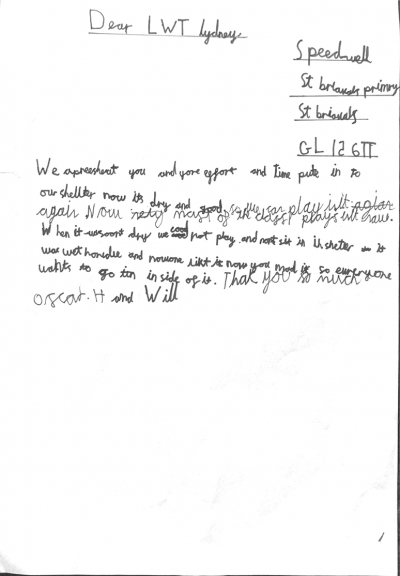 Dear LWT lydney
Speedwell
St briavels primry
St briavels
GL15 6TT
We apreesheat you and yore effort and time pute in to
our shellter now its dry and good so we can play in it agian
again Now rety most of the class plays in it now.
When it wasont dry we cood not play and not sit in it sheter it
was wet horrible and nowone likt it now you mad it so evreyone
wants to go in in side of it. Thak you so much
oscar. H and Will
1